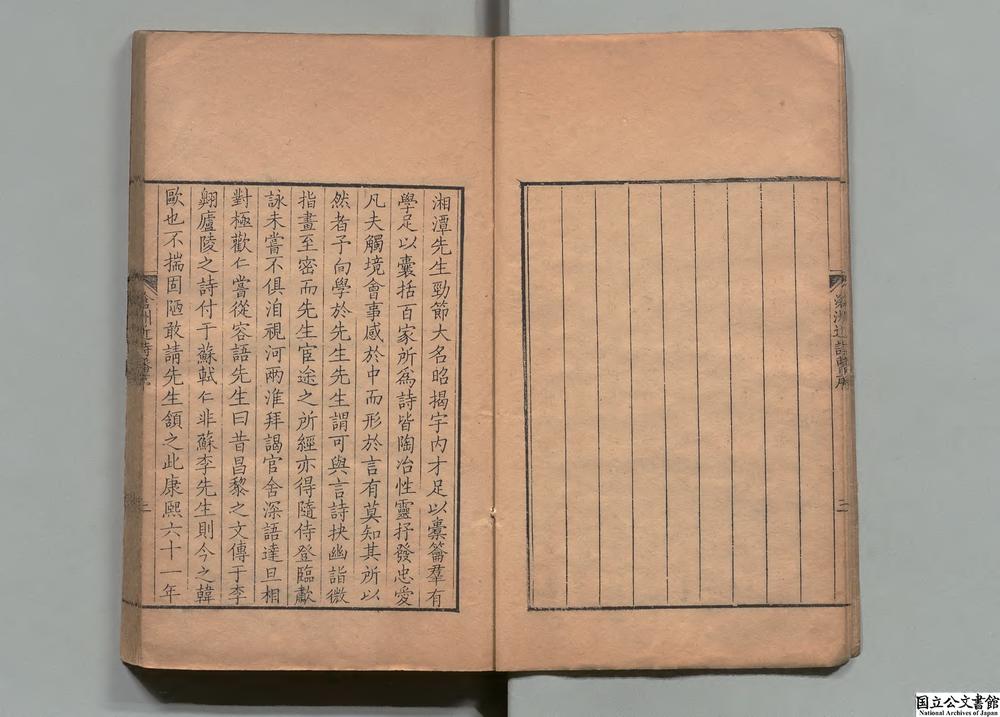 湘潭先生勁節大名昭揭宇内才足以橐籥羣有
學足以囊括百家所爲詩皆陶冶性靈抒發忠愛
凡夫觸境會事感於中而形於言有莫知其所以
然者予向學於先生先生謂可與言詩抉幽詣微
指畫至密而先生宦途之所經亦得隨侍登臨歗
詠未嘗不俱洎視河兩淮拜謁官舍深語達旦相
對極歡仁嘗從容語先生曰昔昌黎之文傳于李
翺廬陵之詩付于蘇軾仁非蘇李先生則今之韓
歐也不揣固陋敢請先生頷之此康熙六十一年
国立公文書館
National Archives of Japan